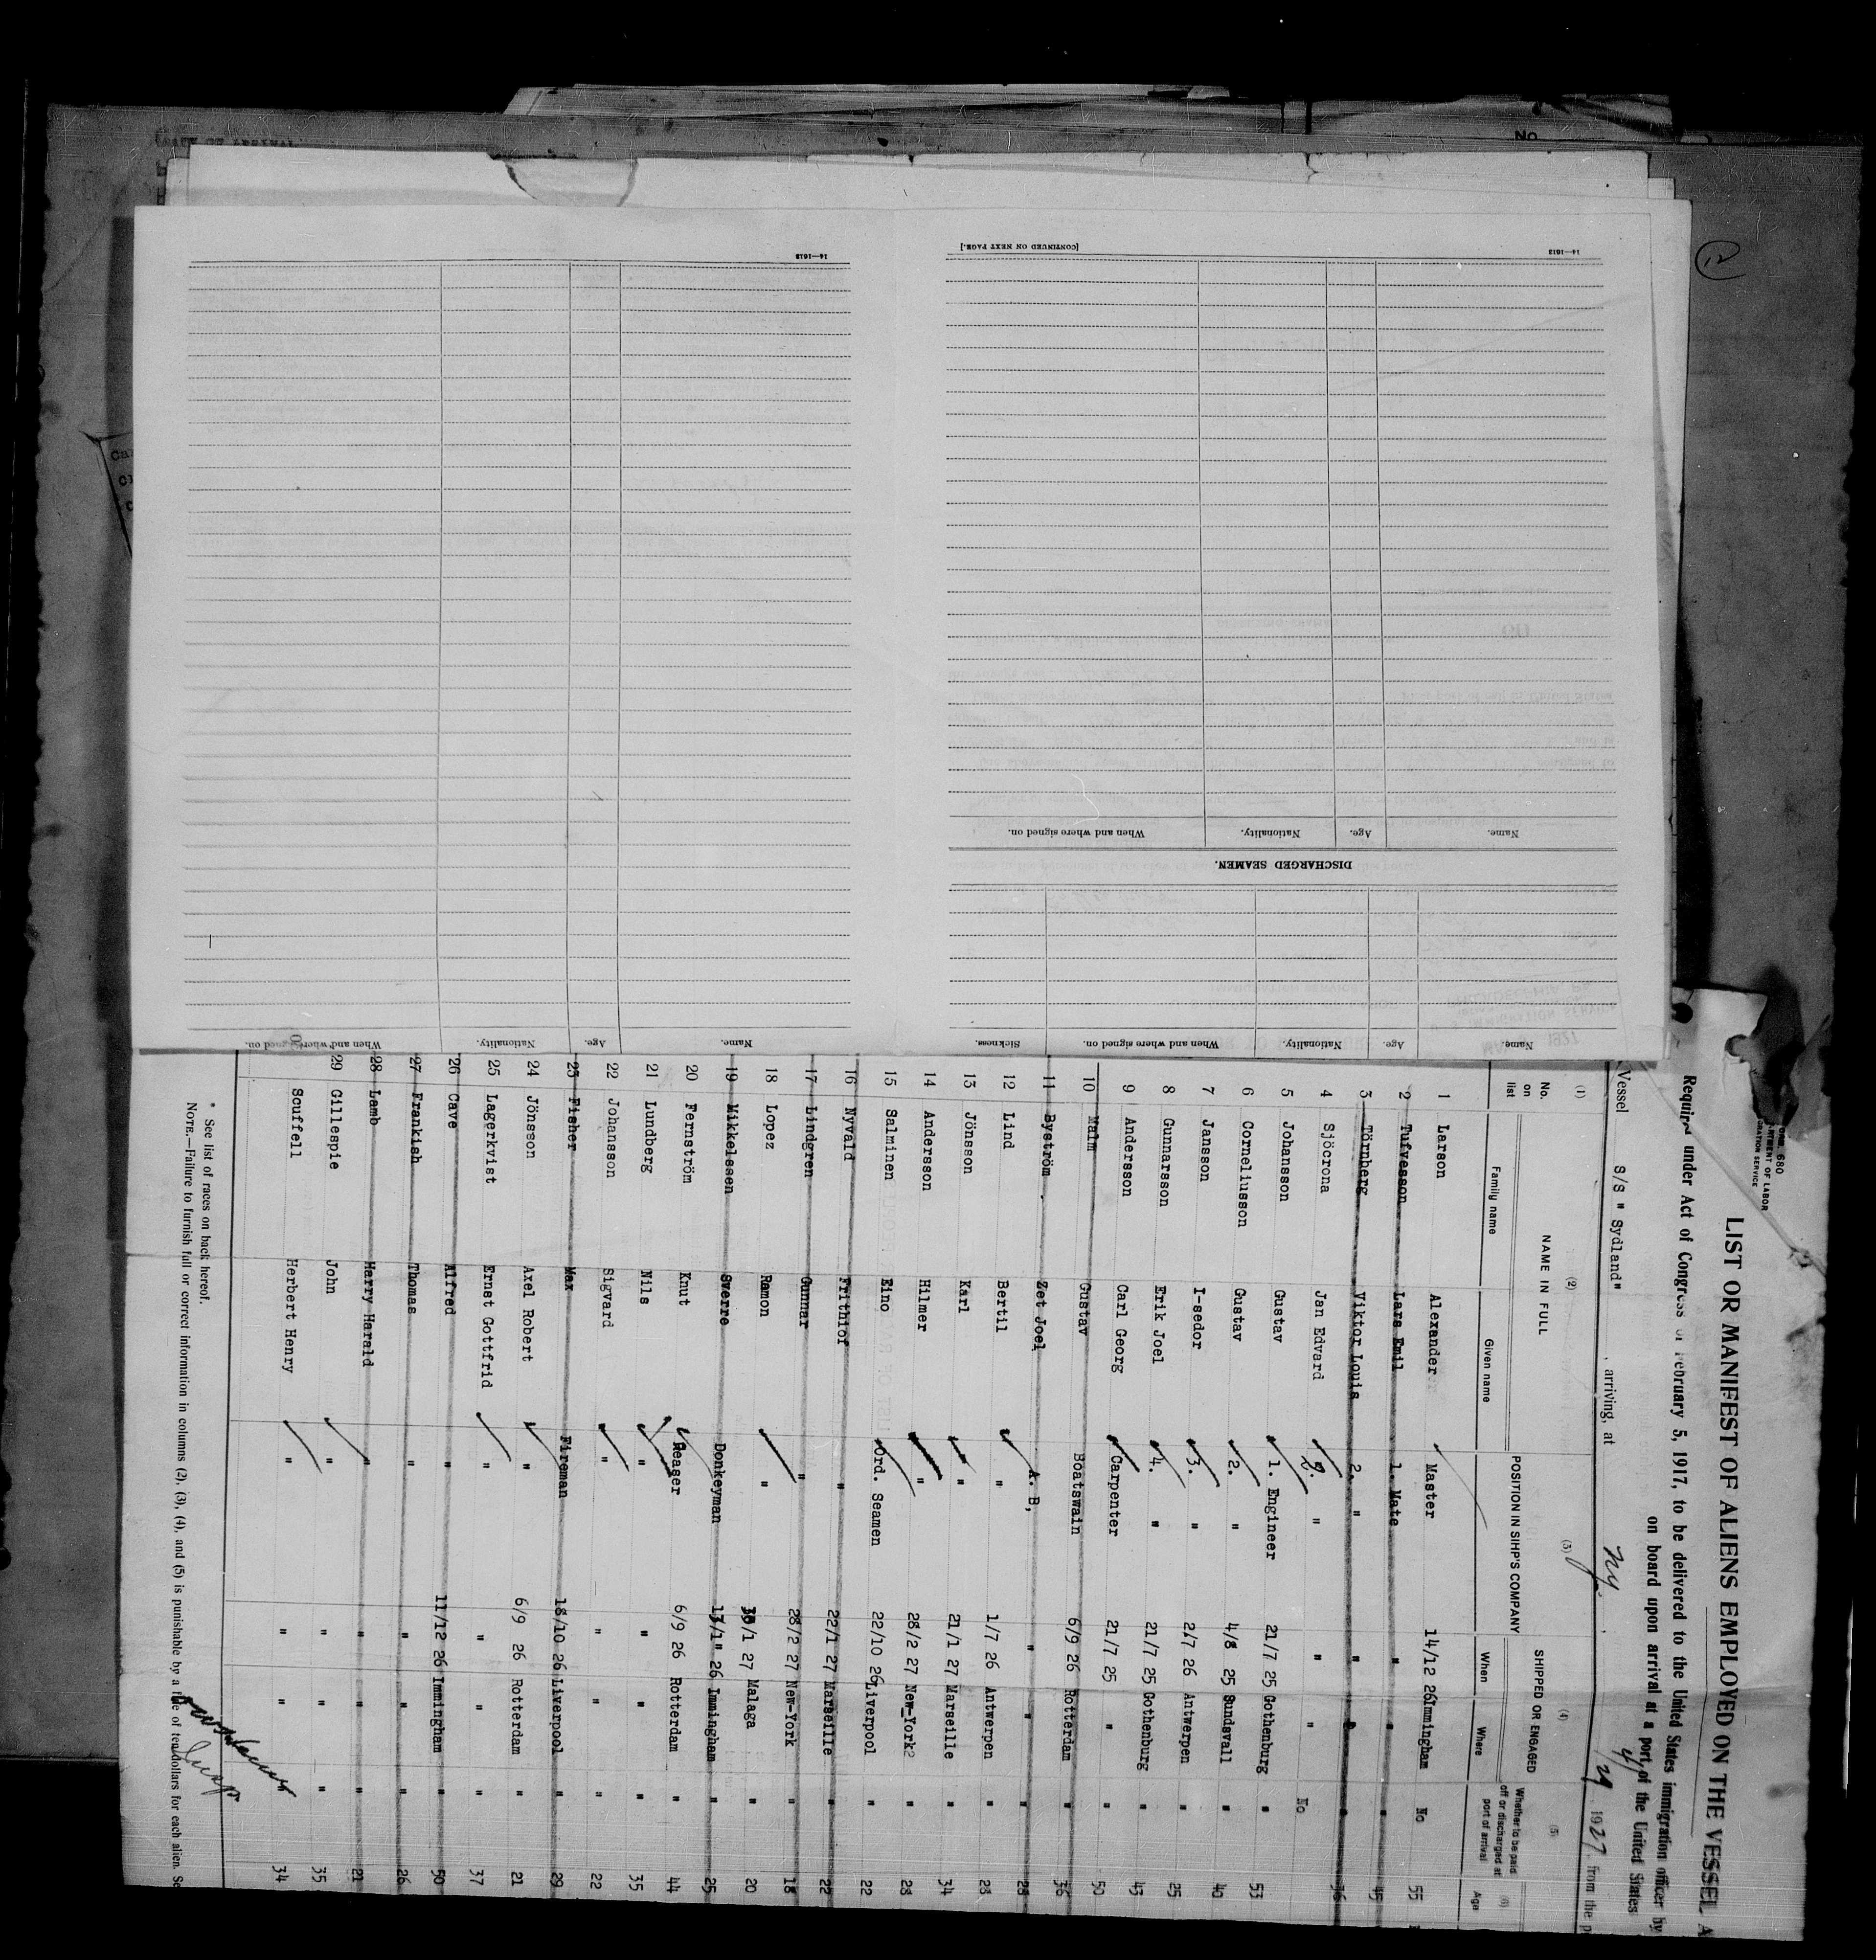 No.
12
14—1613
[CONTINUED ON NEXT PAGE.]
14—1613
Name.
Age.
Nationality.
When and where signed on.
DISCHARGED SEAMEN.
Name.
Age.
Nationality.
When and where signed on.
Sickness.
Name.
Age.
Nationality.
When and where signed on.
680
LIST OR MANIFEST OF ALIENS EMPLOYED ON THE VESSEL A
Required under Act of Congress of February 5, 1917, to be delivered to the United States immigration officer by
on board upon arrival at a port of the United States
Vessel S/S " Sydland" , arriving, at N.Y. , 4/29 1927, from the p
(1) (2) (3) (4) (5) (6)
No. on list NAME IN FULL POSITION IN SIHP'S COMPANY SHIPPED OR ENGAGED Whether to be paid off or discharged at port of arrival Age
Family name Given name When Where
1 Larson Alexander Master 14/12 26 Immingham No 55
2 Tufvesson Lars Emil 1. Mate " " " 45
3 Törnberg Viktor Louis 2. " " " " 36
4 Sjöcrona Jan Edvard 2. " " " No
5 Johansson Gustav 1. Engineer 21/7 25 Gothenburg " 53
6 Corneliusson Gustav 2. " 4/8 25 Sundsvall " 40
7 Jansson I-sedor 3. " 2/7 26 Antwerpen " 25
8 Gunnarsson Erik Joel 4. " 21/7 25 Gothenburg " 43
9 Andersson Carl Georg Carpenter 21/7 25 " " 50
10 Malm Gustav Boatswain 6/9 26 Rotterdam " 36
11 Byström Zet Joel A. B, " " " 28
12 Lind Bertil " 1/7 26 Antwerpen " 28
13 Jönsson Karl " 21/1 27 Marseille " 34
14 Andersson Hilmer " 28/2 27 New-York2 " 28
15 Salminen Eino Ord. Seamen 22/10 26 Liverpool " 22
16 Nyvald Frithiof " 22/1 27 Marseille " 22
17 Lindgren Gunnar " 28/2 27 New-York " 18
18 Lopez Ramon " 30/1 27 Malaga " 20
19 Mikkelssen Sverre Donkeyman 13/1" 26 Immingham " 25
20 Fernström Knut Greaser 6/9 26 Rotterdam " 44
21 Lundberg Nils " " " " 35
22 Johansson Sigvard " " " " 22
23 Fisher Max Fireman 18/10 26 Liverpool " 29
24 Jönsson Axel Robert " 6/9 26 Rotterdam " 21
25 Lagerkvist Ernst Gottfrid " " " " 37
26 Cave Alfred 11/12 26 Immingham " 50
27 Frankish Thomas " " " " 26
28 Lamb Harry Harald " " " " 21
29 Gillespie John " " " " 35
Scuffell Herbert Henry " " " " 34
* See list of races on back hereof.
NOTE.—Failure to furnish full or correct information in columns (2), (3), (4), and (5) is punishable by a fine of ten dollars for each alien. Se